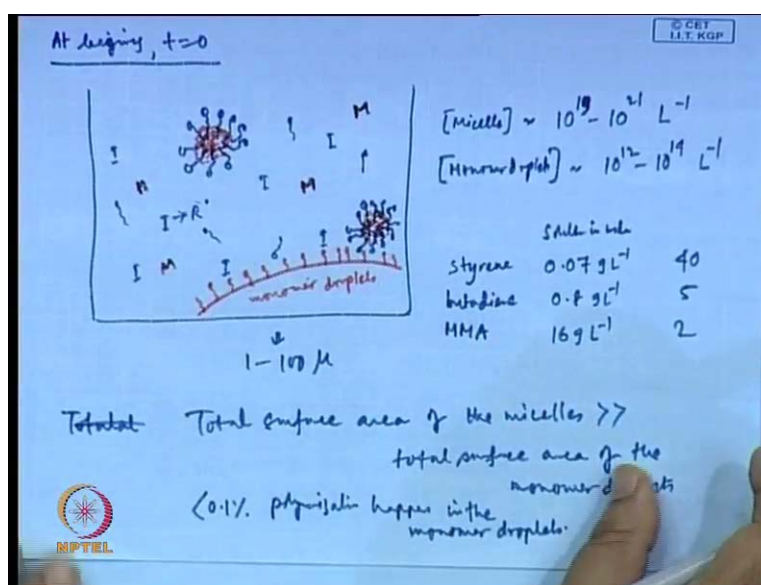 At begining, t=0
© CET
I.I.T. KGP
M
I
I
I
M
M
I → R•
I
M
I
I
monomer droplets
1-100 μ
[Micelle] ~ 10^19 - 10^21 L^-1
[Monomer droplet] ~ 10^12 - 10^14 L^-1
in water
styrene 0.07 gL^-1 40
butadiene 0.8 gL^-1 5
MMA 16 gL^-1 2
Total surface area of the micelles >>
total surface area of the
monomer
<0.1% polymerisation happens in the
monomer droplets.
NPTEL